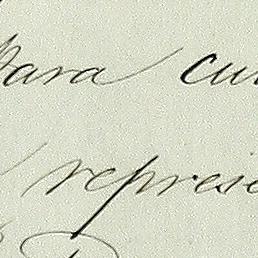 Para cu
represe